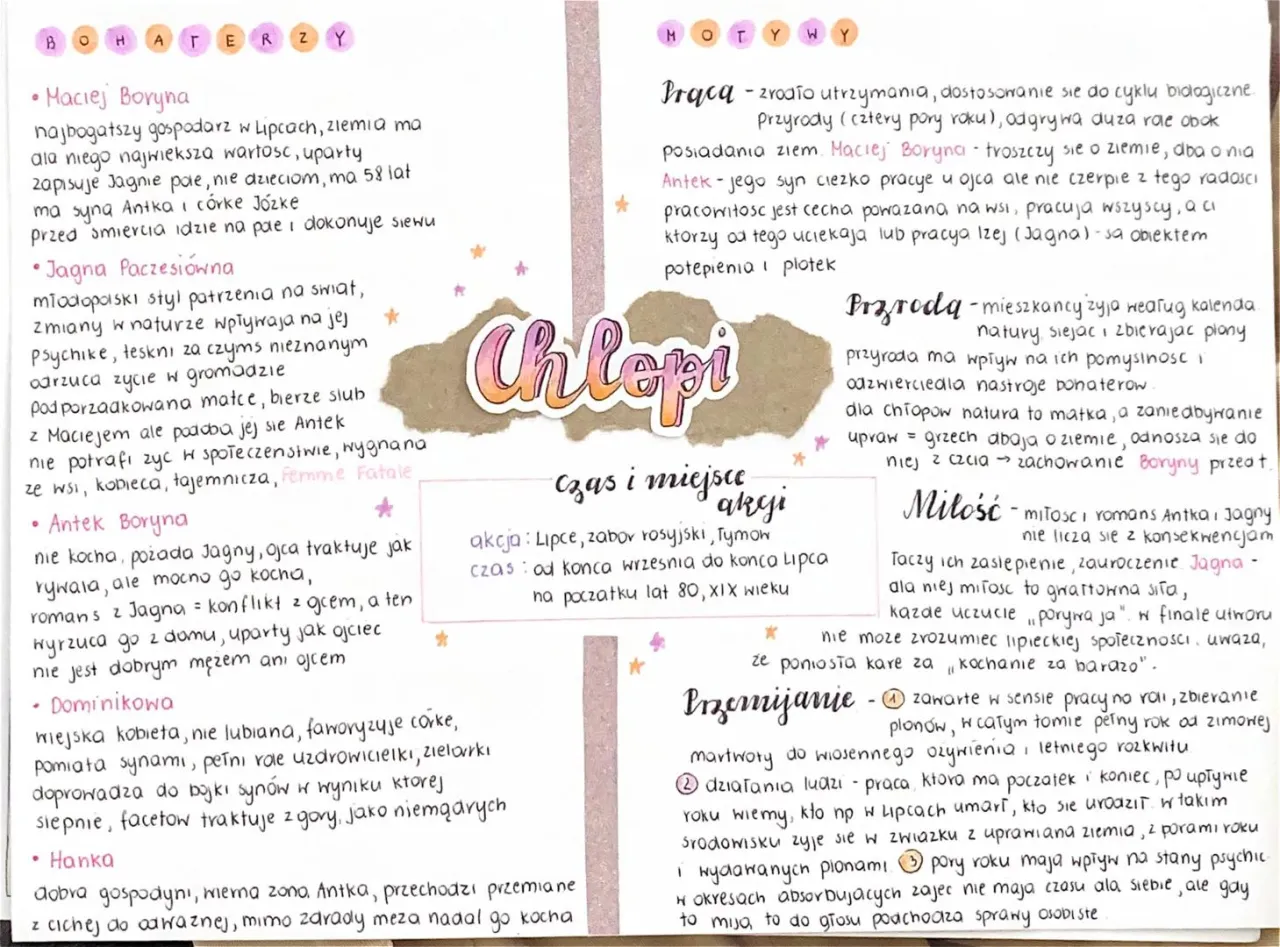 BOHATERZY
• Maciej Boryna
najbogatszy gospodarz w Lipcach, ziemia ma
dla niego największa wartosc, uparty
zapisuje Jagnie pole, nie dzieciom, ma 58 lat
ma syna Antka i córke Józke
przed smiercia idzie na pole i dokonuje siewu
• Jagna Paczesiówna
młodopolski styl patrzenia na swiat,
zmiany w naturze wpływaja na jej
psychike, teskni za czyms nieznanym
odrzuca zycie w gromadzie
podporzadkowana matce, bierze slub
z Maciejem ale podoba jej sie Antek
nie potrafi zyc w społeczenstwie, wygnana
ze wsi, kobieca, tajemnicza, Femme Fatale
• Antek Boryna
nie kocha, pożada Jagny, ojca traktuje jak
rywala, ale mocno go kocha,
romans z Jagna = konflikt z ojcem, a ten
wyrzuca go z domu, uparty jak ojciec
nie jest dobrym mężem ani ojcem
• Dominikowa
wiejska kobieta, nie lubiana, faworyzuje córke,
pomiata synami, pełni role uzdrowicielki, zielarki
doprowadza do bojki synów w wyniku ktorej
slepnie, facetow traktuje z gory, jako niemądrych
• Hanka
dobra gospodyni, wierna zona Antka, przechodzi przemiane
z cichej do odwaznej, mimo zdrady meza nadal go kocha
Chłopi
czas i miejsce
akcji
akcja: Lipce, zabor rosyjski, Tymow
czas: od konca wrzesnia do konca Lipca
na poczatku lat 80, XIX wieku
MOTYWY
Praca - zrodło utrzymania, dostosowanie sie do cyklu biologiczne
Przyrody (cztery pory roku), odgrywa duza role obok
posiadania ziem. Maciej Boryna - troszczy sie o ziemie, dba o nia
Antek - jego syn ciezko pracuje u ojca ale nie czerpie z tego radosci
pracowitosc jest cecha powazana na wsi, pracuja wszyscy, a ci
ktorzy od tego uciekaja lub pracyja lzej (Jagna) - sa obiektem
potepienia i plotek
Przyroda - mieszkancy zyja według kalenda
natury, siejac i zbierajac plony
przyroda ma wpływ na ich pomyslnosc i
odzwierciedla nastroje bohaterow.
dla chłopow natura to matka, a zaniedbywanie
upraw = grzech dbaja o ziemie, odnosza sie do
niej z czcia → zachowanie Boryny przed t.
Miłość - miłosc i romans Antka i Jagny
nie licza sie z konsekwencjam
łaczy ich zaslepienie, zauroczenie. Jagna -
dla niej miłosc to gwałtowna siła,
kazde uczucie „porywa ja". w finale utworu
nie moze zrozumiec lipieckiej społecznosci. uwaza,
że poniosła kare za „kochanie za bardzo".
Przemijanie - 1 zawarte w sensie pracy na roli, zbieranie
plonów, w całym tomie pełny rok od zimowej
martwoty do wiosennego ozywienia i letniego rozkwitu
2 działania ludzi - praca, ktora ma poczatek i koniec, po upływie
roku wiemy, kto np w Lipcach umarł, kto sie urodził. w takim
srodowisku zyje sie w zwiazku z uprawiana ziemia, z porami roku
i wydawanych plonami. 3 pory roku maja wpływ na stany psychic
w okresach absorbujących zajec nie maja czasu dla siebie, ale gdy
to mija to do głosu podchodza sprawy osobiste.